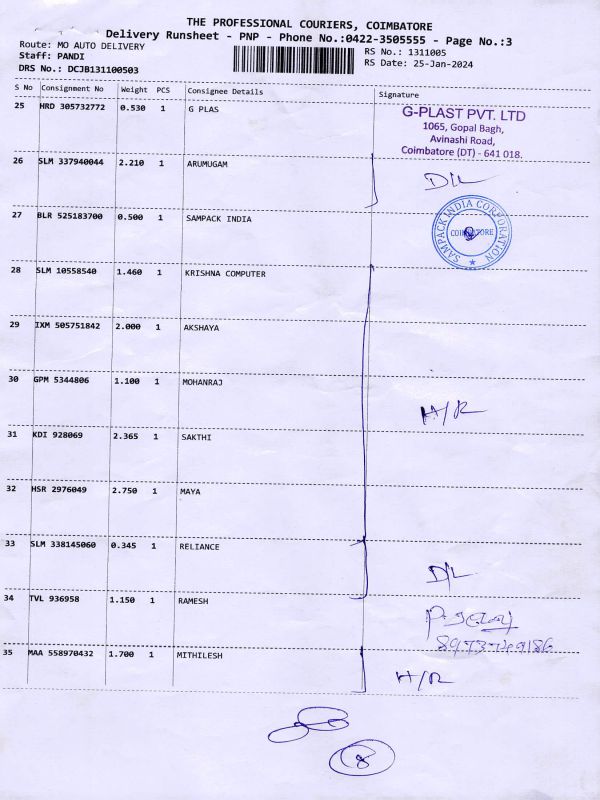 THE PROFESSIONAL COURIERS, COIMBATORE
Delivery Runsheet - PNP - Phone No.:0422-3505555 - Page No.:3
Route: MO AUTO DELIVERY
Staff: PANDI
DRS No.: DCJB131100503
RS No.: 1311005
RS Date: 25-Jan-2024
S No Consignment No Weight PCS Consignee Details Signature
25 HRD 305732772 0.530 1 G PLAS
G-PLAST PVT. LTD
1065, Gopal Bagh,
Avinashi Road,
Coimbatore (DT) - 641 018.
26 SLM 337940044 2.210 1 ARUMUGAM
D/L
27 BLR 525183700 0.500 1 SAMPACK INDIA
SAMPACK INDIA CORPORATION
COIMBATORE
28 SLM 10558540 1.460 1 KRISHNA COMPUTER
29 IXM 505751842 2.000 1 AKSHAYA
30 GPM 5344806 1.100 1 MOHANRAJ
H/R
31 KDI 928069 2.365 1 SAKTHI
32 HSR 2976049 2.750 1 MAYA
33 SLM 338145060 0.345 1 RELIANCE
D/L
34 TVL 936958 1.150 1 RAMESH
35 MAA 558970432 1.700 1 MITHILESH
H/R
8